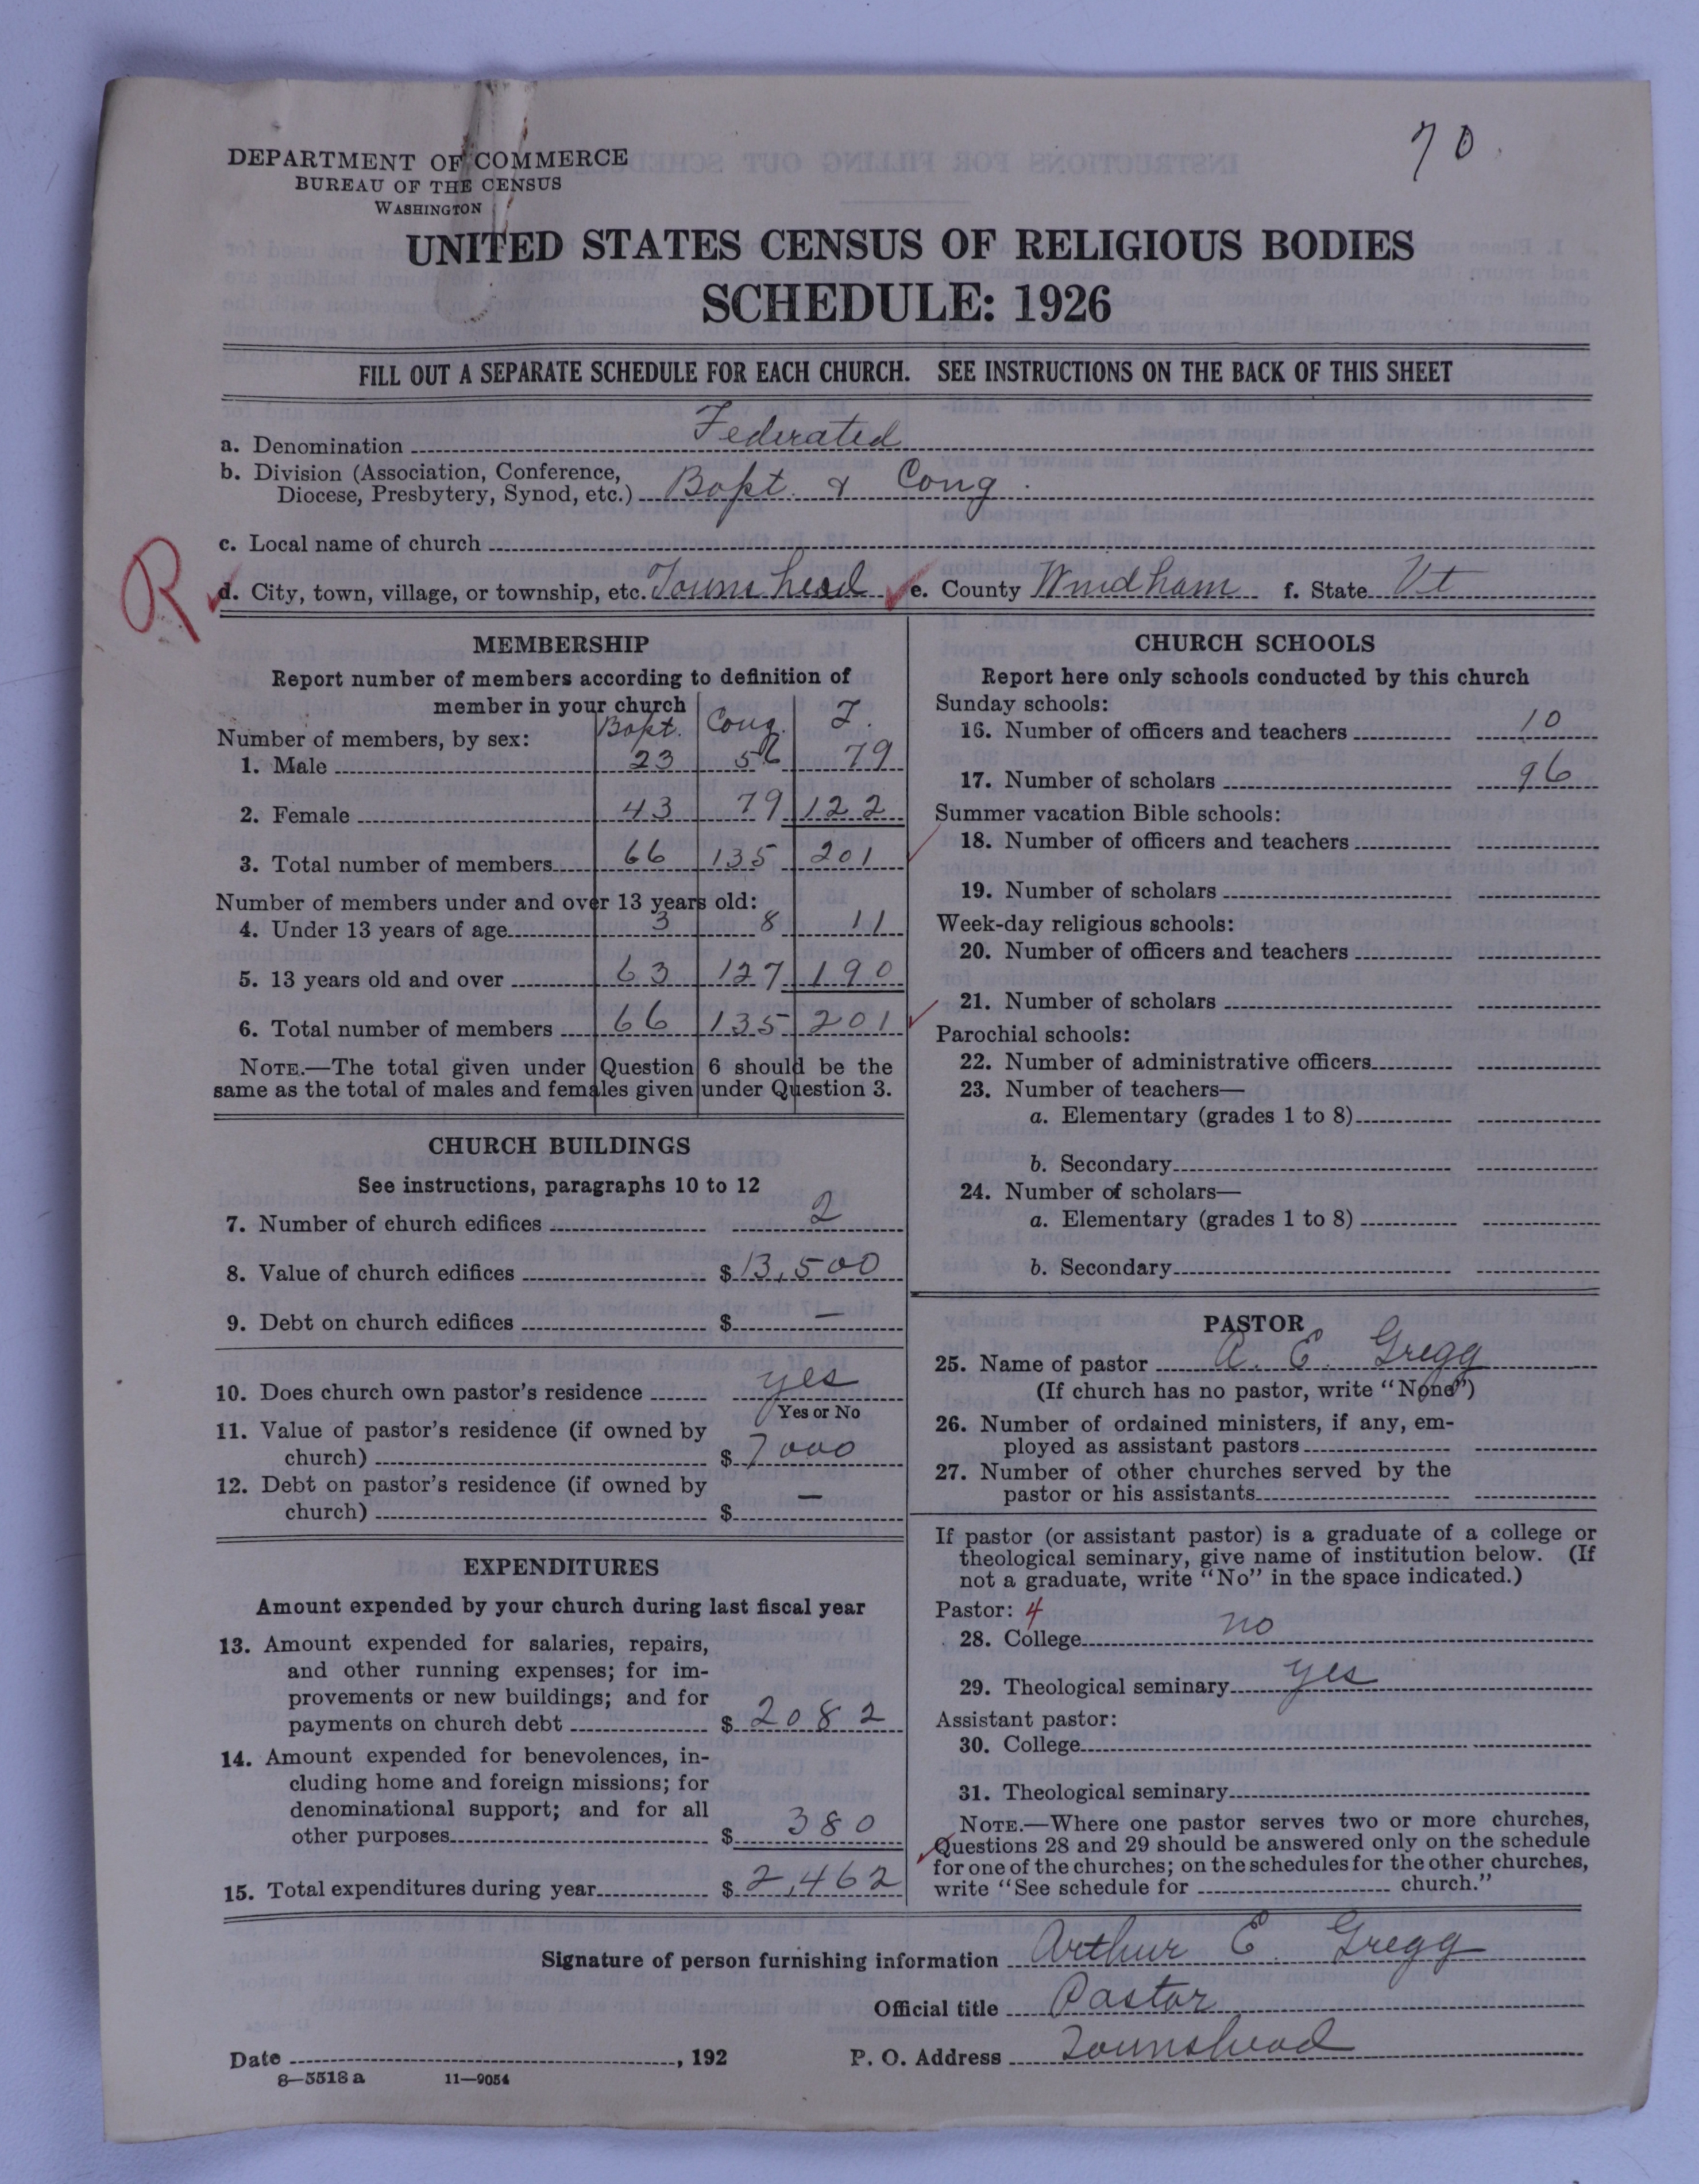 70.
DEPARTMENT OF COMMERCE
BUREAU OF THE CENSUS
WASHINGTON
UNITED STATES CENSUS OF RELIGIOUS BODIES
SCHEDULE: 1926
FILL OUT A SEPARATE SCHEDULE FOR EACH CHURCH. SEE INSTRUCTIONS ON THE BACK OF THIS SHEET
a. Denomination Federated
b. Division (Association, Conference,
Diocese, Presbytery, Synod, etc.) Bapt. & Cong.
c. Local name of church
R
d. City, town, village, or township, etc. Townshend e. County Windham f. State Vt
MEMBERSHIP
Report number of members according to definition of
member in your church
Bapt. Cong. T.
Number of members, by sex:
1. Male 23 56 79
2. Female 43 79 122
3. Total number of members 66 135 201
Number of members under and over 13 years old:
4. Under 13 years of age 3 8 11
5. 13 years old and over 63 127 190
6. Total number of members 66 135 201
NOTE.—The total given under Question 6 should be the
same as the total of males and females given under Question 3.
CHURCH BUILDINGS
See instructions, paragraphs 10 to 12
7. Number of church edifices 2
8. Value of church edifices $13,500
9. Debt on church edifices $ —
10. Does church own pastor's residence yes
Yes or No
11. Value of pastor's residence (if owned by
church) $7000
12. Debt on pastor's residence (if owned by
church) $ —
EXPENDITURES
Amount expended by your church during last fiscal year
13. Amount expended for salaries, repairs,
and other running expenses; for im-
provements or new buildings; and for
payments on church debt $2082
14. Amount expended for benevolences, in-
cluding home and foreign missions; for
denominational support; and for all
other purposes $380
15. Total expenditures during year $2,462
CHURCH SCHOOLS
Report here only schools conducted by this church
Sunday schools:
16. Number of officers and teachers 10
17. Number of scholars 96
Summer vacation Bible schools:
18. Number of officers and teachers
19. Number of scholars
Week-day religious schools:
20. Number of officers and teachers
21. Number of scholars
Parochial schools:
22. Number of administrative officers
23. Number of teachers—
a. Elementary (grades 1 to 8)
b. Secondary
24. Number of scholars—
a. Elementary (grades 1 to 8)
b. Secondary
PASTOR
25. Name of pastor A. E. Gregg
(If church has no pastor, write "None")
26. Number of ordained ministers, if any, em-
ployed as assistant pastors
27. Number of other churches served by the
pastor or his assistants
If pastor (or assistant pastor) is a graduate of a college or
theological seminary, give name of institution below. (If
not a graduate, write "No" in the space indicated.)
Pastor: 4
28. College no
29. Theological seminary yes
Assistant pastor:
30. College
31. Theological seminary
NOTE.—Where one pastor serves two or more churches,
Questions 28 and 29 should be answered only on the schedule
for one of the churches; on the schedules for the other churches,
write "See schedule for church."
Signature of person furnishing information Arthur E. Gregg
Official title Pastor
Date , 192 P. O. Address Townshend
8—5518 a 11—9054